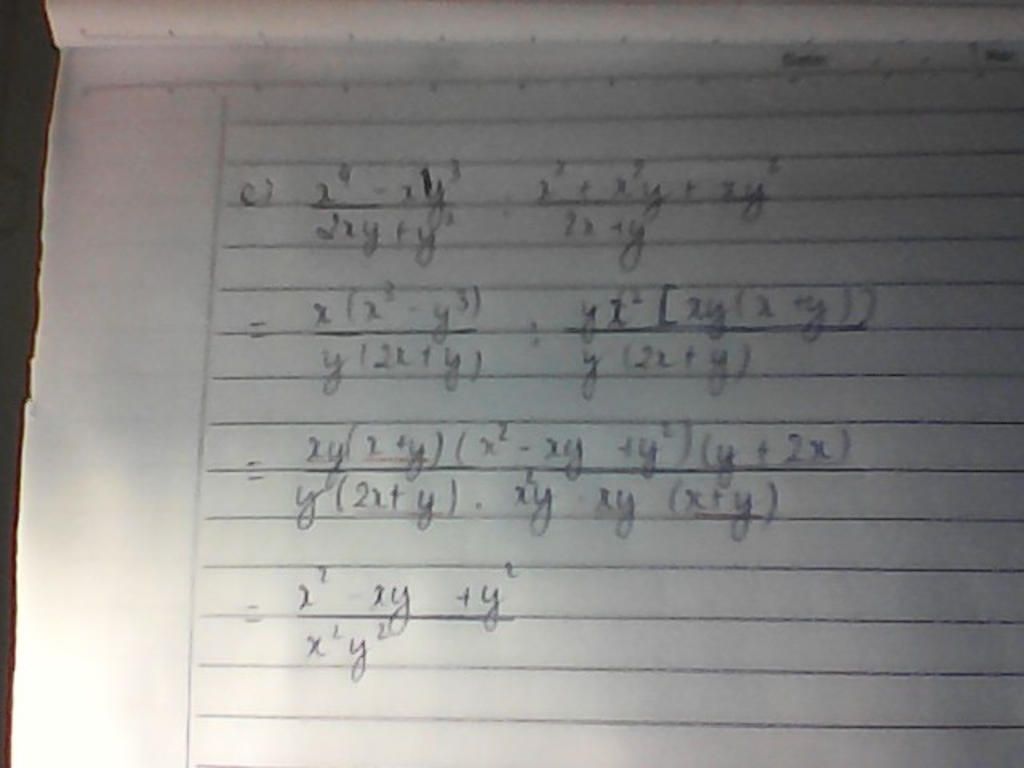 c) x⁴ - xy³ / 2xy + y² : x³ + x²y + xy² / 2x + y
= x (x³ - y³) / y (2x + y) : yx² [xy (x + y)) / y (2x + y)
= xy(x + y) (x² - xy + y²) (y + 2x) / y (2x + y) . x²y xy (x + y)
= x² - xy + y² / x² y²